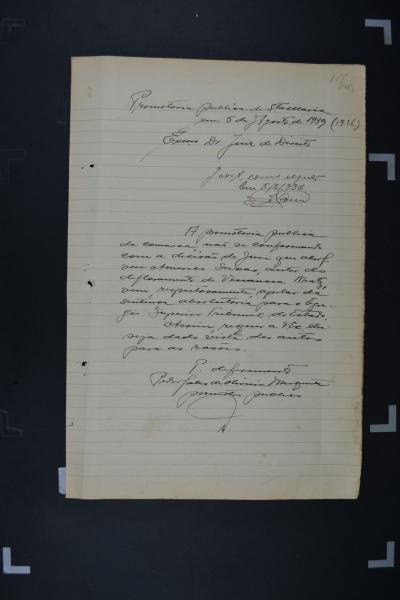 Promotoria publica de Sta Maria
em 5 de Agosto de 1939 (1936)
Exmo Dr. Juiz de Direito
como requer.
Em 5/8/936
A promotoria publica
da comarca, não se conformando
com a decisão do Jury que absol-
veu Seixas, autor do
defloramento de Venancia
vem respeitosamente apelar da
sentença absolutoria para o Egre-
gio Superior Tribunal do Estado.
Assim, requer a V. Exa
seja dado vista dos autos
para as razões.
P. deferimento
Pedro de Oliveira
promotor publico